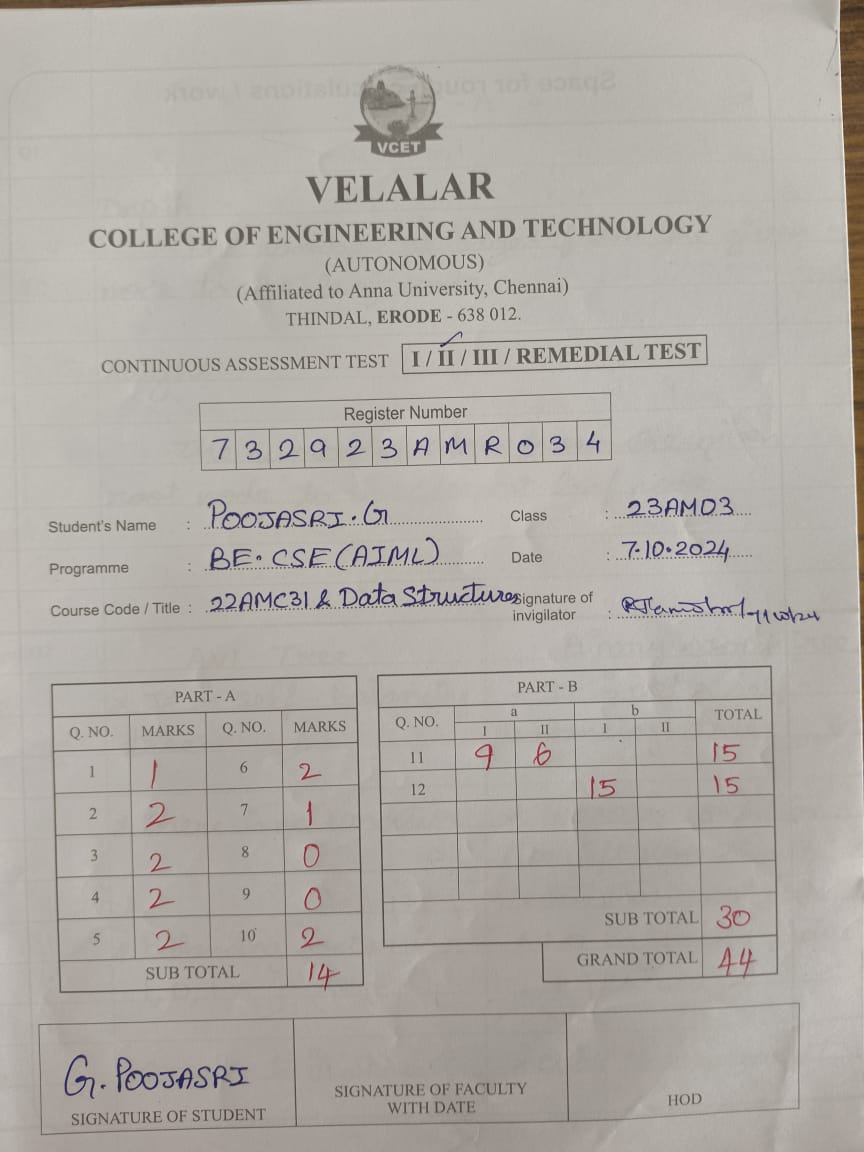 VCET
VELALAR
COLLEGE OF ENGINEERING AND TECHNOLOGY
(AUTONOMOUS)
(Affiliated to Anna University, Chennai)
THINDAL, ERODE - 638 012.
CONTINUOUS ASSESSMENT TEST I / II / III / REMEDIAL TEST
Register Number
7 3 2 9 2 3 A M R 0 3 4
Student's Name : POOJASRI.G Class : 23AM03
Programme : BE.CSE(AIML) Date : 7.10.2024
Course Code / Title : 22AMC31 & Data Structures Signature of
invigilator :
PART - A
Q. NO. MARKS Q. NO. MARKS
1 1 6 2
2 2 7 1
3 2 8 0
4 2 9 0
5 2 10 2
SUB TOTAL 14
PART - B
Q. NO. a b TOTAL
I II I II
11 9 6 15
12 15 15
SUB TOTAL 30
GRAND TOTAL 44
G. POOJASRI
SIGNATURE OF STUDENT
SIGNATURE OF FACULTY
WITH DATE
HOD